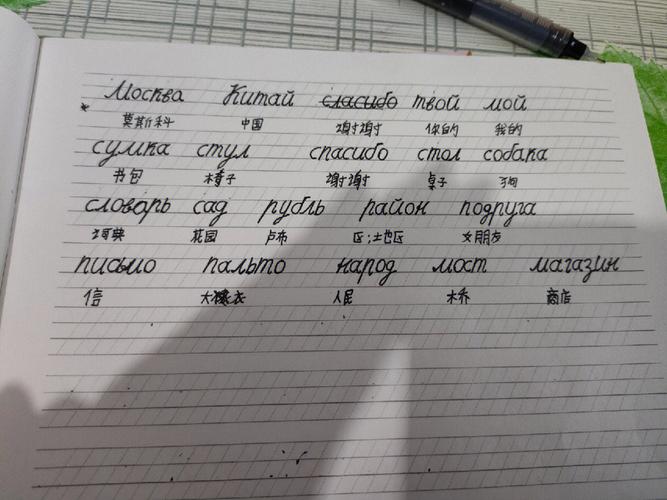 Москва Китай сласибо твой мой
莫斯科 中国 谢谢 你的 我的
сумка стул спасибо стол собака
书包 椅子 谢谢 桌子 狗
словарь сад рубль район подруга
词典 花园 卢布 区;地区 女朋友
письмо пальто народ мост магазин
信 大衣 人民 桥 商店